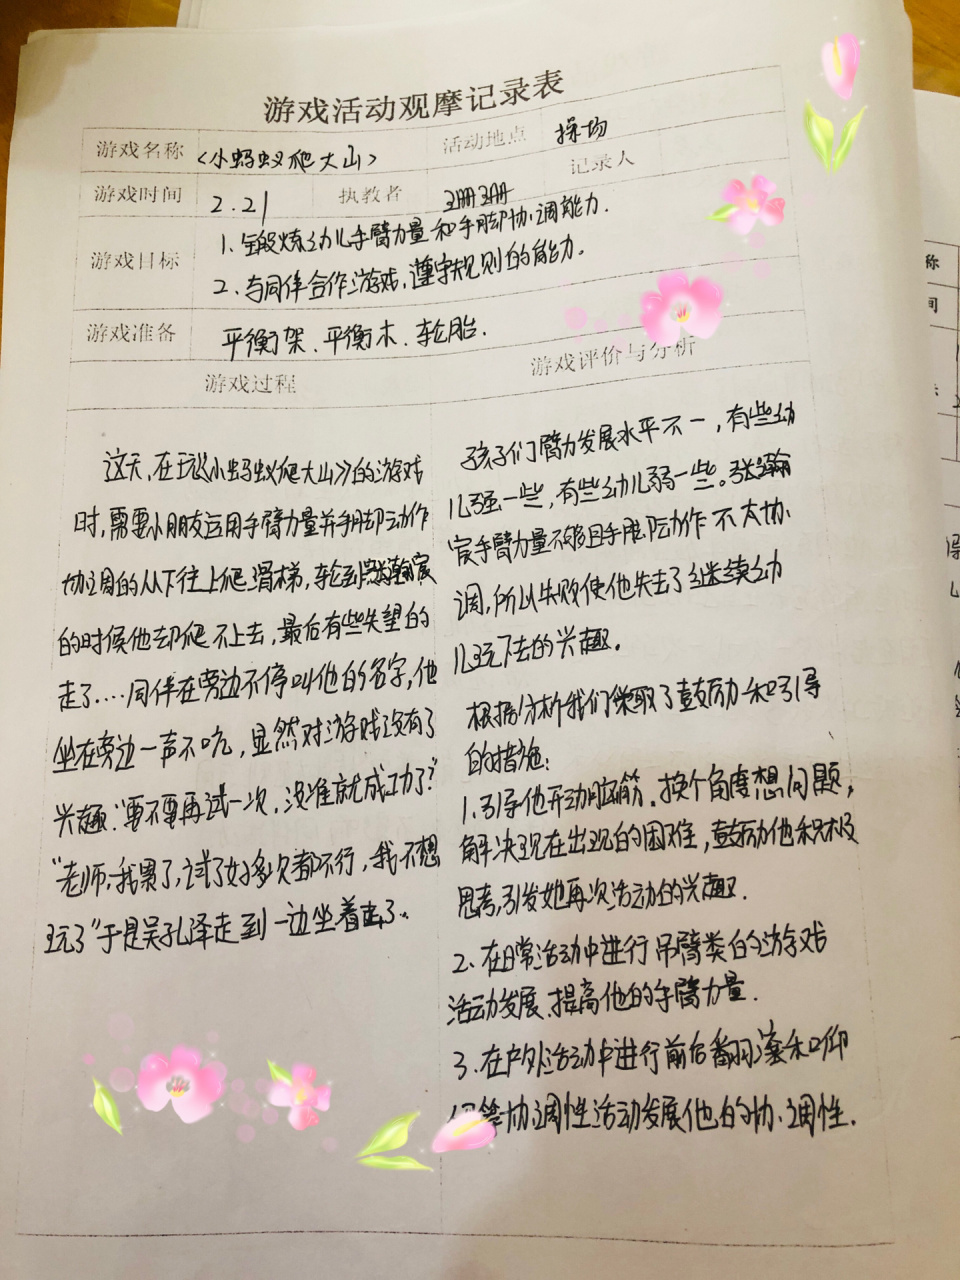 游戏活动观摩记录表
游戏名称 《小蚂蚁爬大山》 活动地点 操场
游戏时间 2.21 执教者 记录人
游戏目标 1、锻炼幼儿手臂力量和手脚协调能力.
2、与同伴合作游戏,遵守规则的能力.
游戏准备 平衡架、平衡木、轮胎.
游戏过程 游戏评价与分析
这天,在玩《小蚂蚁爬大山》的游戏
时,需要小朋友运用手臂力量并手脚动作
协调的从下往上爬滑梯,轮到张瀚宸
的时候他却爬不上去,最后有些失望的
走了....同伴在旁边不停叫他的名字,他
坐在旁边一声不吭,显然对游戏没有了
兴趣."要不要再试一次,没准就成功了?"
"老师,我累了,试了好多次都不行,我不想
玩了"于是吴孔泽走到一边坐着去了..
孩子们臂力发展水平不一,有些幼
儿强一些,有些幼儿弱一些。张瀚
宸手臂力量不够且手脚动作不太协
调,所以失败使他失去了继续幼
儿玩下去的兴趣.
根据分析我们采取了鼓励和引导
的措施:
1.引导他开动脑筋.换个角度想问题,
解决现在出现的困难,鼓励他积极
思考,引发她再次活动的兴趣.
2、在日常活动中进行吊臂类的游戏
活动发展、提高他的手臂力量.
3、在户外活动中进行前后翻滚和仰
等协调性活动发展他的协调性.
称
间